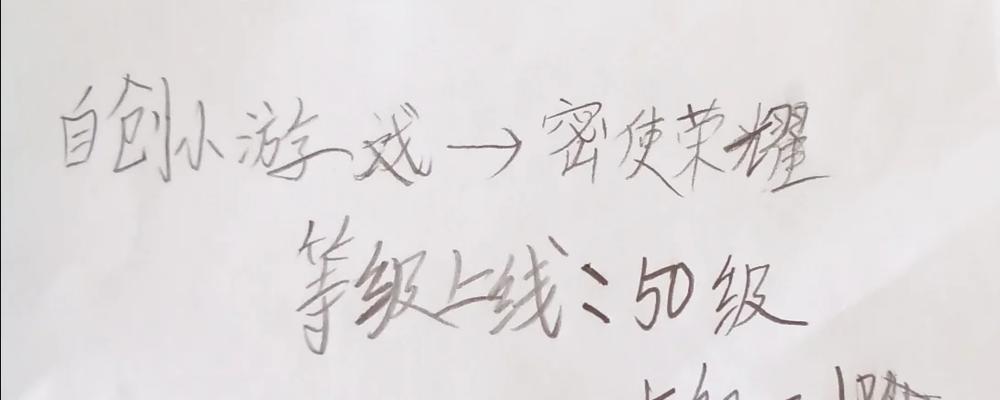 自创小游戏→密使荣耀
等级上线:50级